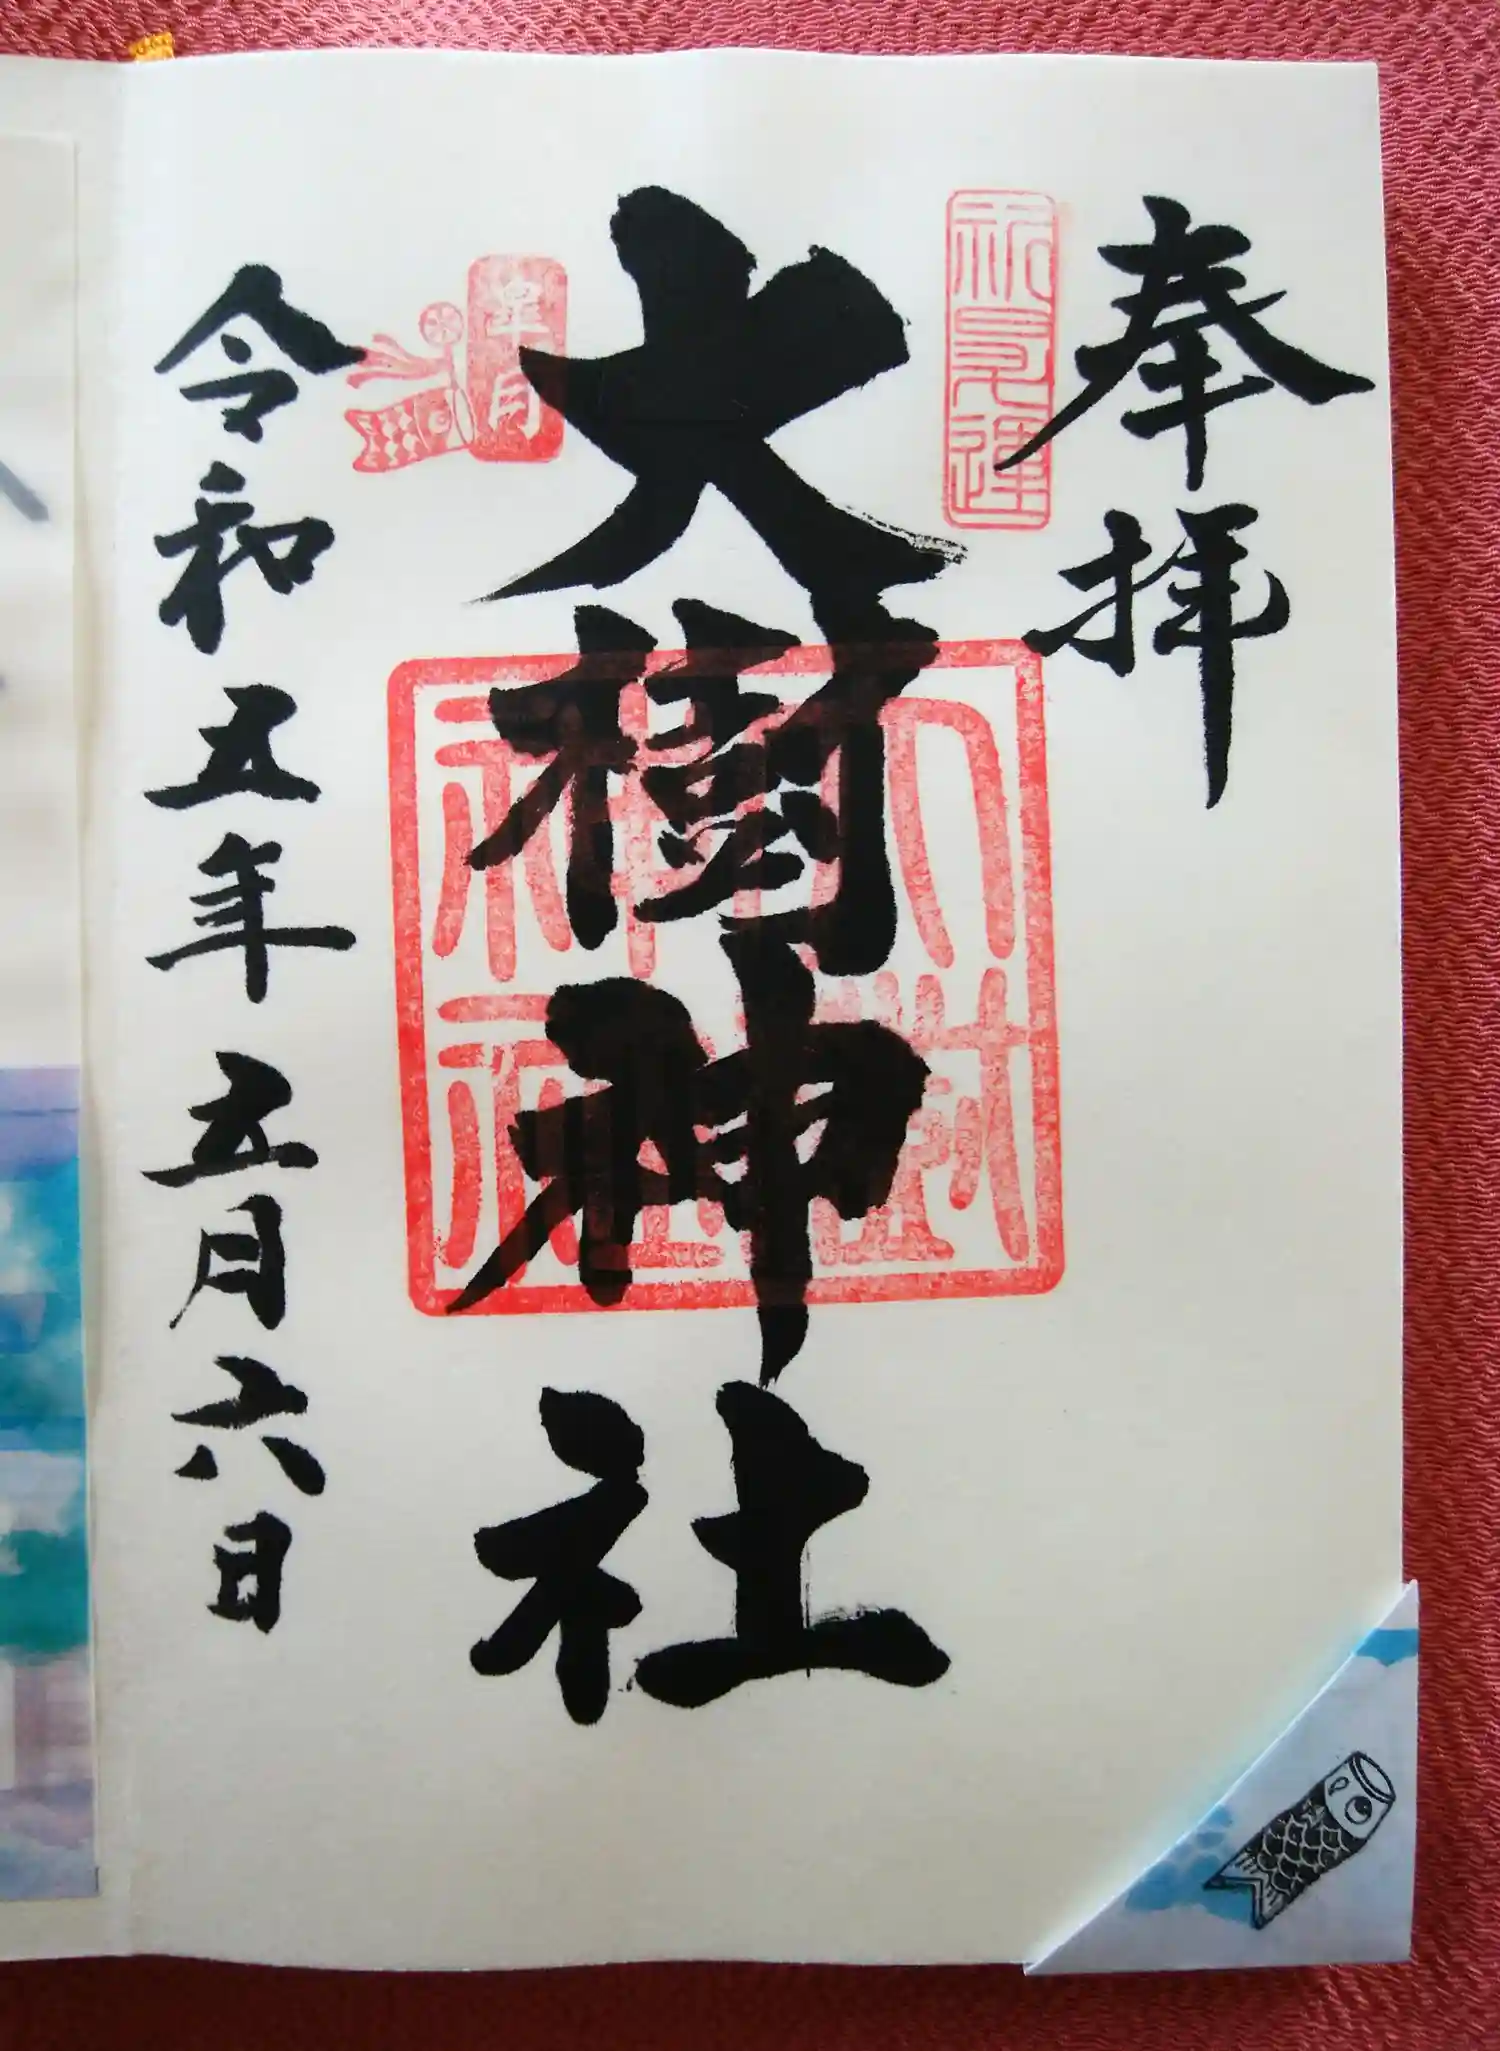 奉拝
大樹神社
皐月
令和五年五月六日
大樹
神社